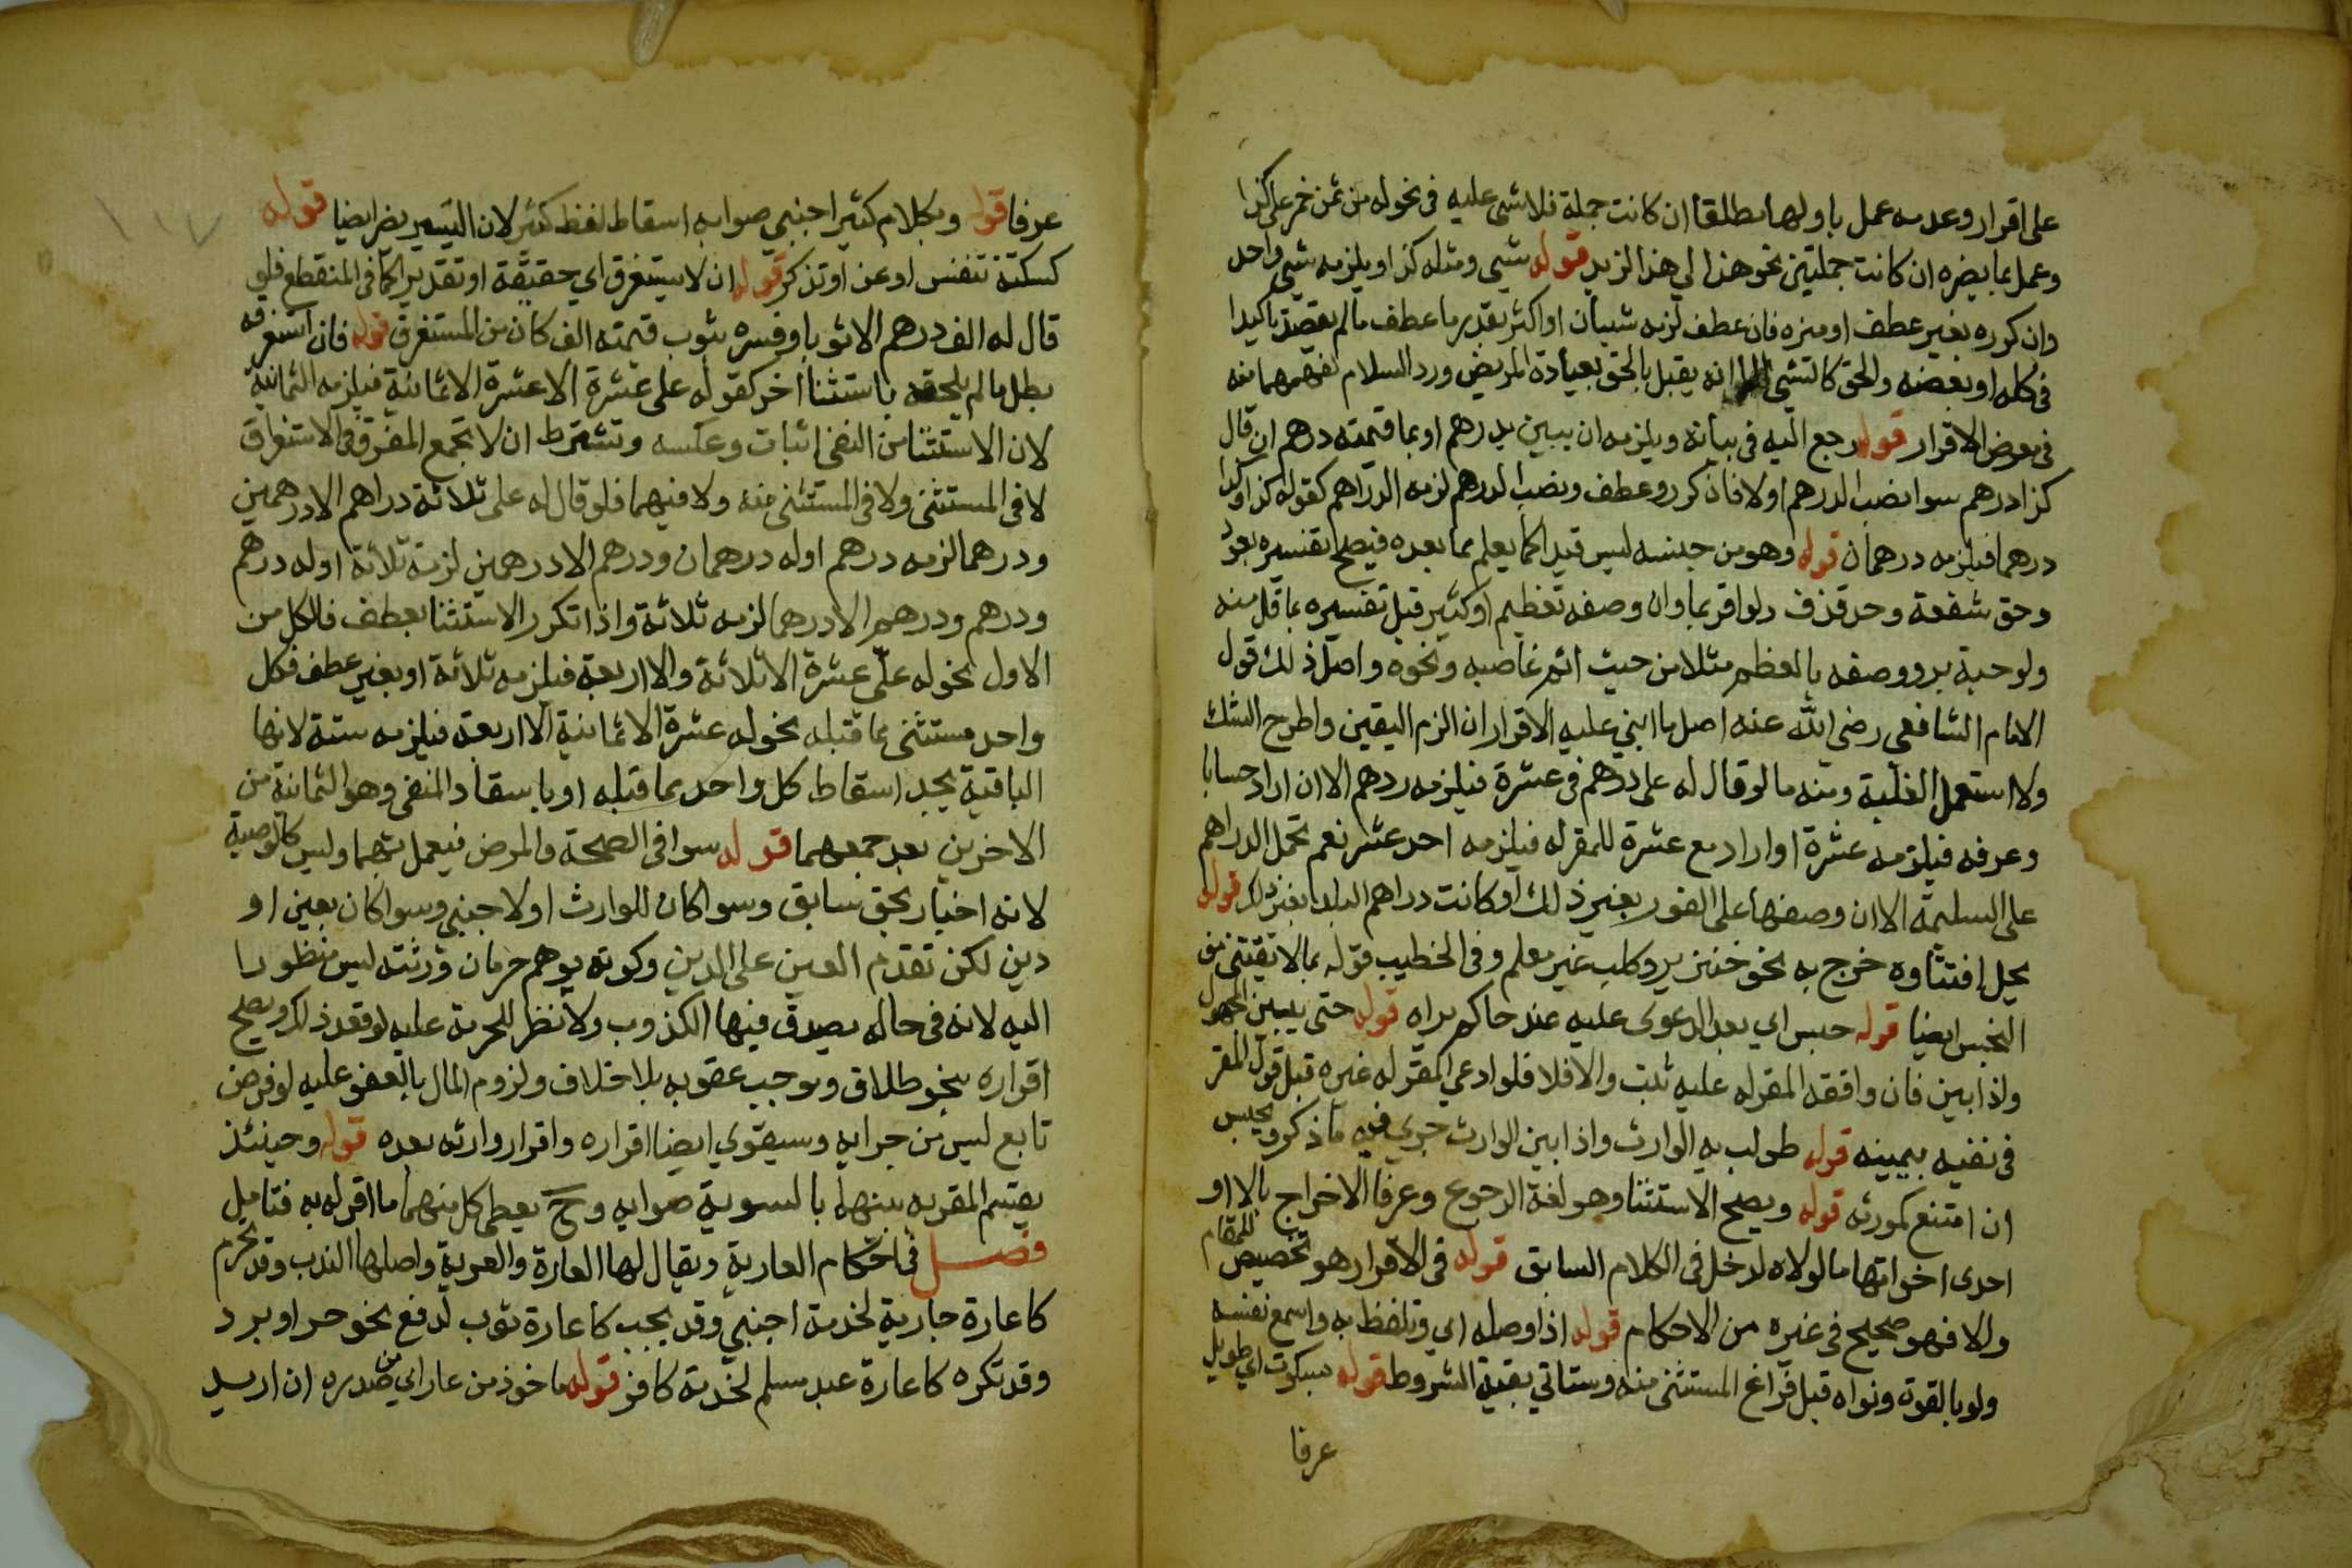 على اقرار وعدمه عمل باولها مطلقا ان كانت جملة فلا شى عليه فى نحو له من ثمن خمر على كذا
وعمل بما يضره ان كانت جملتين نحو هذا لي هذا لزيد قوله شى ومثله كذا ويلزمه شى واحد
وان كرره بغير عطف او منزه فان عطف لزمه شيبان او اكثر بقدر ما عطف مالم يقصد تاكيدا
فى كله او بعضه والحق كالشى الا انه يقبل بالحق بعيادة المريض ورد السلام لفهمهما منه
فى معرض الاقرار قوله رجع اليه فى بيانه ويلزمه ان يبين بدرهم او بما قيمته درهم ان قال
كذا درهم سوا نصب الدرهم اولا فان كرر وعطف ونصب الدرهم لزمه الدراهم كقوله كذا وكذا
درهما فيلزمه درهمان قوله وهو من جنسه ليس قيدا كما يعلم مما بعده فيصح تفسيره بعود
وحق شفعة وحد قذف ولو اقر بما وان وصفه تعظيم او كثير قبل تفسيره بما قل منه
ولو حبة بر ووصفه بالعظم مثلا من حيث اثم غاصبه ونحوه واصل ذلك قول
الامام الشافعي رضي الله عنه اصل ما ابني عليه الاقرار ان الزم اليقين واطرح الشك
ولا استعمل الغلبة ومنه ما لو قال له على درهم فى عشرة فيلزمه درهم الا ان اراد حسابا
وعرفه فيلزمه عشرة او اراد مع عشرة للمقر له فيلزمه احد عشر نعم تحمل الدراهم
على السليمة الا ان وصفها على الفور بغير ذلك او كانت دراهم البلد بغير ذلك قوله
يحل اقتناوه خرج به نحو خنزير وكلب غير معلم وفى الخطيب قوله بما لا يقتنى من
النجس ايضا قوله حبس اي بعد الدعوى عليه عند حاكم يراه قوله حتى يبين المجهول
واذا بين فان وافقه المقر له عليه ثبت والا فلا فلو ادعى المقر له غيره قبل قول المقر
فى نفيه بيمينه قوله طولب به الوارث واذا بين الوارث جرى فيه ما ذكر ويحبس
ان امتنع كمورثه قوله ويصح الاستثنا وهو لغة الرجوع وعرفا الاخراج بالا او
احدى اخواتها ما لولاه لدخل فى الكلام السابق قوله فى الاقرار هو تخصيص للمقام
والا فهو صحيح فى غيره من الاحكام قوله اذا وصله اي وتلفظ به واسمع نفسه
ولو بالقوة ونواه قبل فراغ المستثنى منه وستاتي بقية الشروط قوله بسكوت اي طويل
عرفا
عرفا قوله وبكلام كثير اجنبي صوابه اسقاط لفظ كثير لان اليسير يضر ايضا قوله
كسكتة تنفس او عن او تذكر قوله ان لا يستغرق اي حقيقة او تقديرا كما فى المنقطع فلو
قال له الف درهم الا ثوبا وفسره بثوب قيمته الف كان من المستغرق قوله فان استغرقه
بطل ما لم يلحقه باستثنا اخر كقوله على عشرة الا عشرة الا ثمانية فيلزمه الثمانية
لان الاستثنا من النفى اثبات وعكسه وتشترط ان لا يجمع المفرق فى الاستغراق
لا فى المستثنى ولا فى المستثنى منه ولا فيهما فلو قال له على ثلاثة دراهم الا درهمين
ودرهما لزمه درهم او له درهمان ودرهم الا درهمين لزمه ثلاثة او له درهم
ودرهم ودرهم الا درهما لزمه ثلاثة واذا تكرر الاستثنا بعطف فالكل من
الاول نحو له على عشرة الا ثلاثة والا اربعة فيلزمه ثلاثة او بغير عطف فكل
واحد مستثنى مما قبله نحو له عشرة الا ثمانية الا اربعة فيلزمه ستة لانها
الباقية بعد اسقاط كل واحد مما قبله او باسقاط المنفى وهو الثمانية من
الاخرين بعد جمعهما قوله سوا فى الصحة والمرض فيعمل بهما وليس كالوصية
لانه اخبار بحق سابق وسوا كان للوارث او لاجنبي وسوا كان بعين او
دين لكن تقدم العين على الدين وكونه يوهم حرمان ورثته ليس منظورا
اليه لانه فى حاله يصدق فيها الكذوب ولا نظر للحرمة عليه لو قصد ذلك ويصح
اقراره بنحو طلاق وموجب عقوبه بلا خلاف ولزوم المال بالعفو عليه لو فرض
تابع ليس من جرايه وسيقوي ايضا اقراره واقرار وارثه بعده قوله وحينئذ
يقسم المقر به بينهما بالسوية صوابه وح يعطى كل منهما ما اقر له به فتامل
فصل فى احكام العارية ويقال لها العارة والعرية واصلها الندب وقد تحرم
كاعارة جارية لخدمة اجنبي وقد يجب كاعارة ثوب لدفع نحو حر او برد
وقد تكره كاعارة عبد مسلم لخدمة كافر قوله ماخوذ من عار اي من مصدره ان اريد